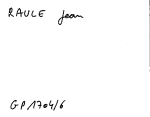 RAULE Jean
GP/1704/6